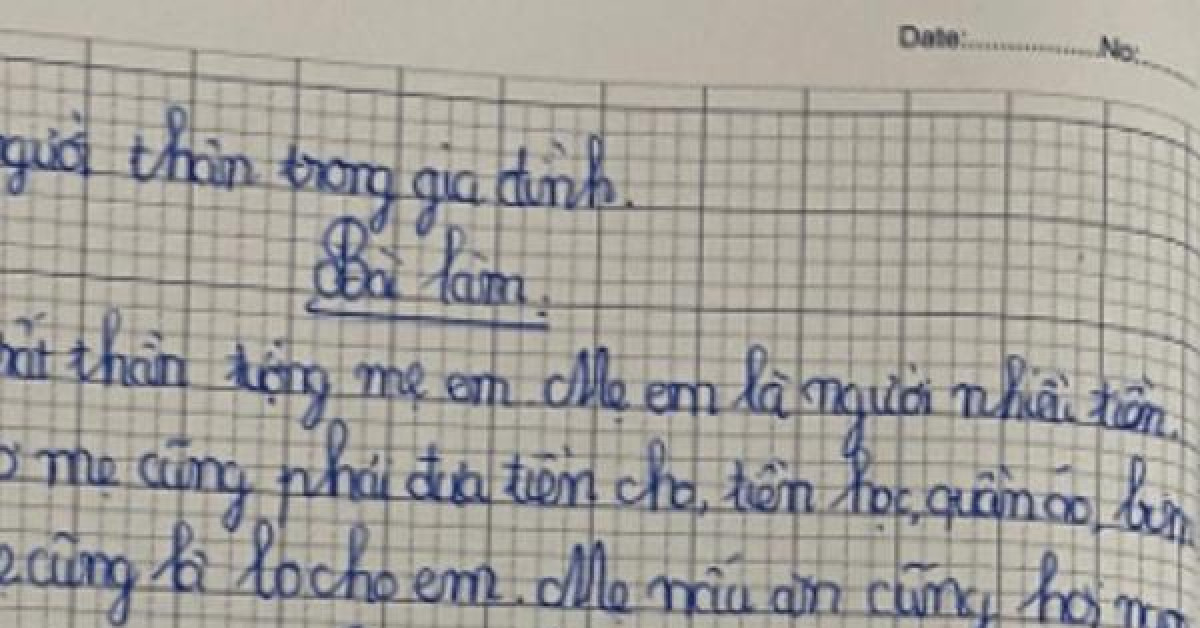 Date:................No:
người thân trong gia đình.
Bài làm.
rất thần tượng mẹ em. Mẹ em là người nhiều tiền.
mẹ cũng phải đưa tiền cho, tiền học, quần áo, bún
cũng là lo cho em. Mẹ nấu ăn cũng hơi